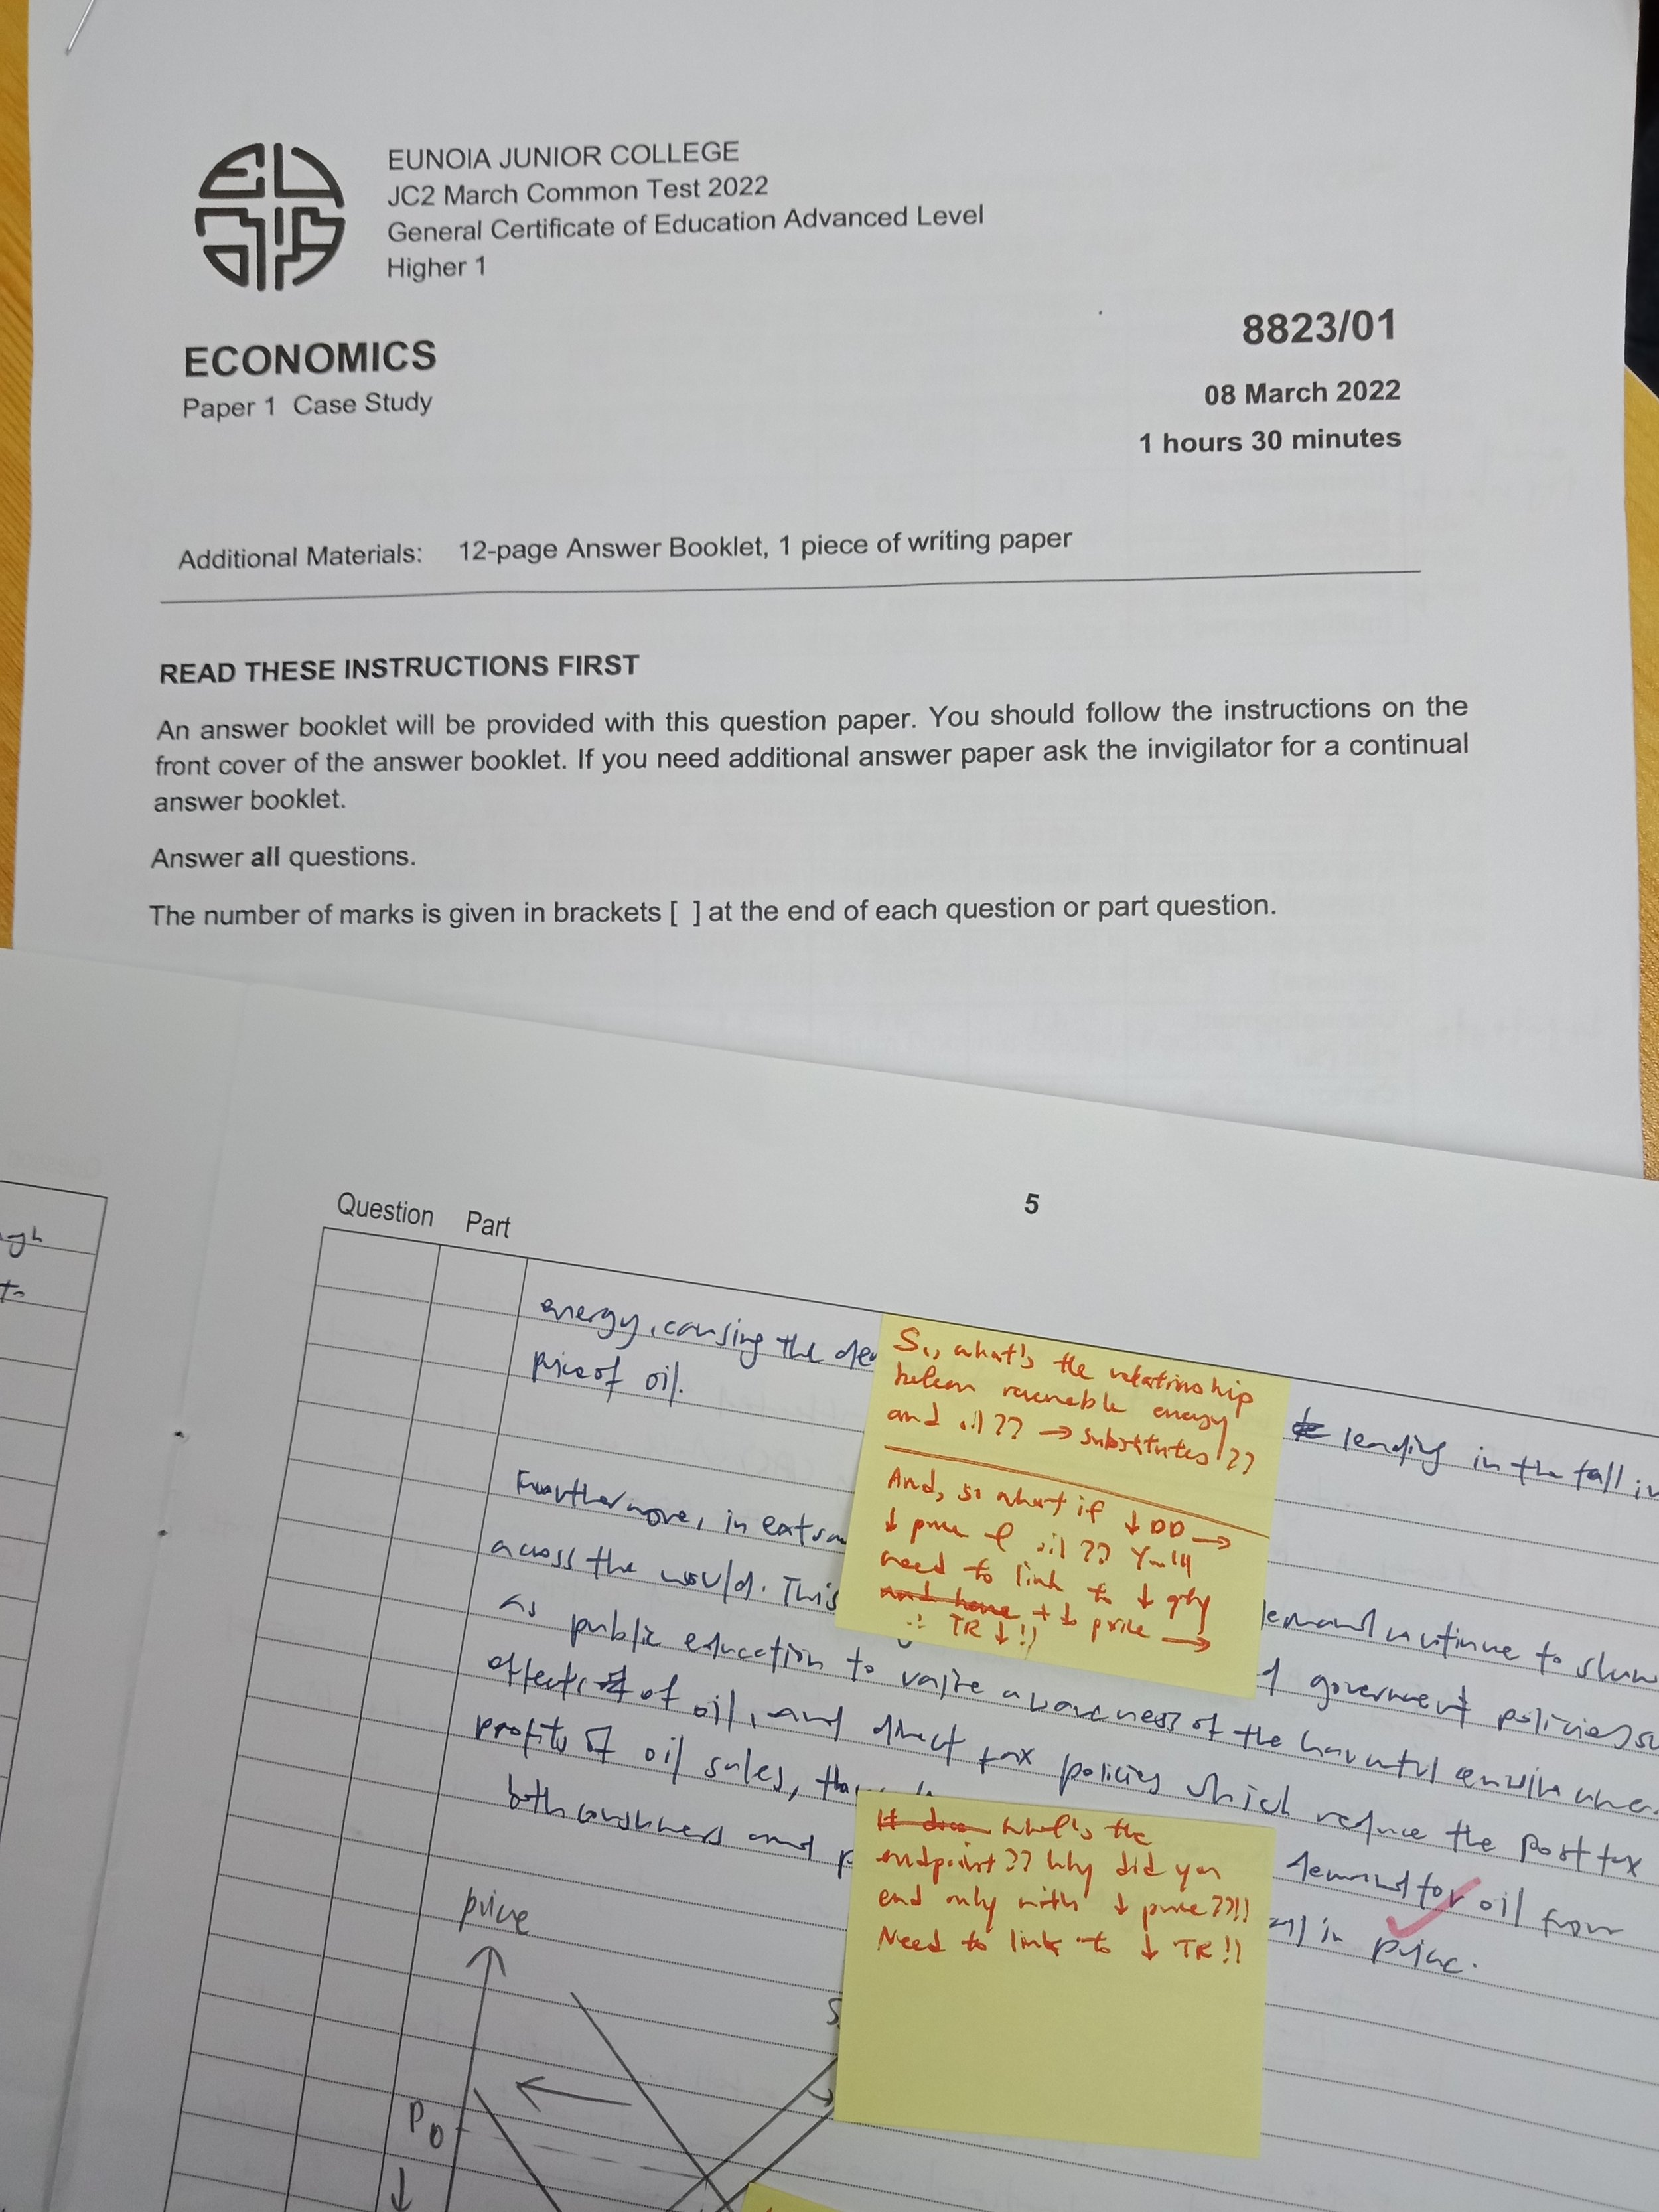 EUNOIA JUNIOR COLLEGE
JC2 March Common Test 2022
General Certificate of Education Advanced Level
Higher 1
ECONOMICS
8823/01
Paper 1 Case Study
08 March 2022
1 hours 30 minutes
Additional Materials: 12-page Answer Booklet, 1 piece of writing paper
READ THESE INSTRUCTIONS FIRST
An answer booklet will be provided with this question paper. You should follow the instructions on the
front cover of the answer booklet. If you need additional answer paper ask the invigilator for a continual
answer booklet.
Answer all questions.
The number of marks is given in brackets [ ] at the end of each question or part question.
5
Question Part
energy, causing the
leading in the fall in
price of oil.
Furthermore, in
demand continue to slow
across the world. This
government policies
as public education to raise awareness of the harmful
effects of oil, and direct tax policies which reduce the post tax
profits of oil sales,
demand for oil from
both consumers and
in price.
price
P0
So, what's the relationship
between renewable energy
and oil?? → substitutes!??
And, so what if ↓ DD →
↓ price of oil??
need to link to ↓ qty
+ ↓ price →
∴ TR ↓!!
what's the
endpoint?? Why did you
end only with ↓ price??!!
Need to link to ↓ TR!!